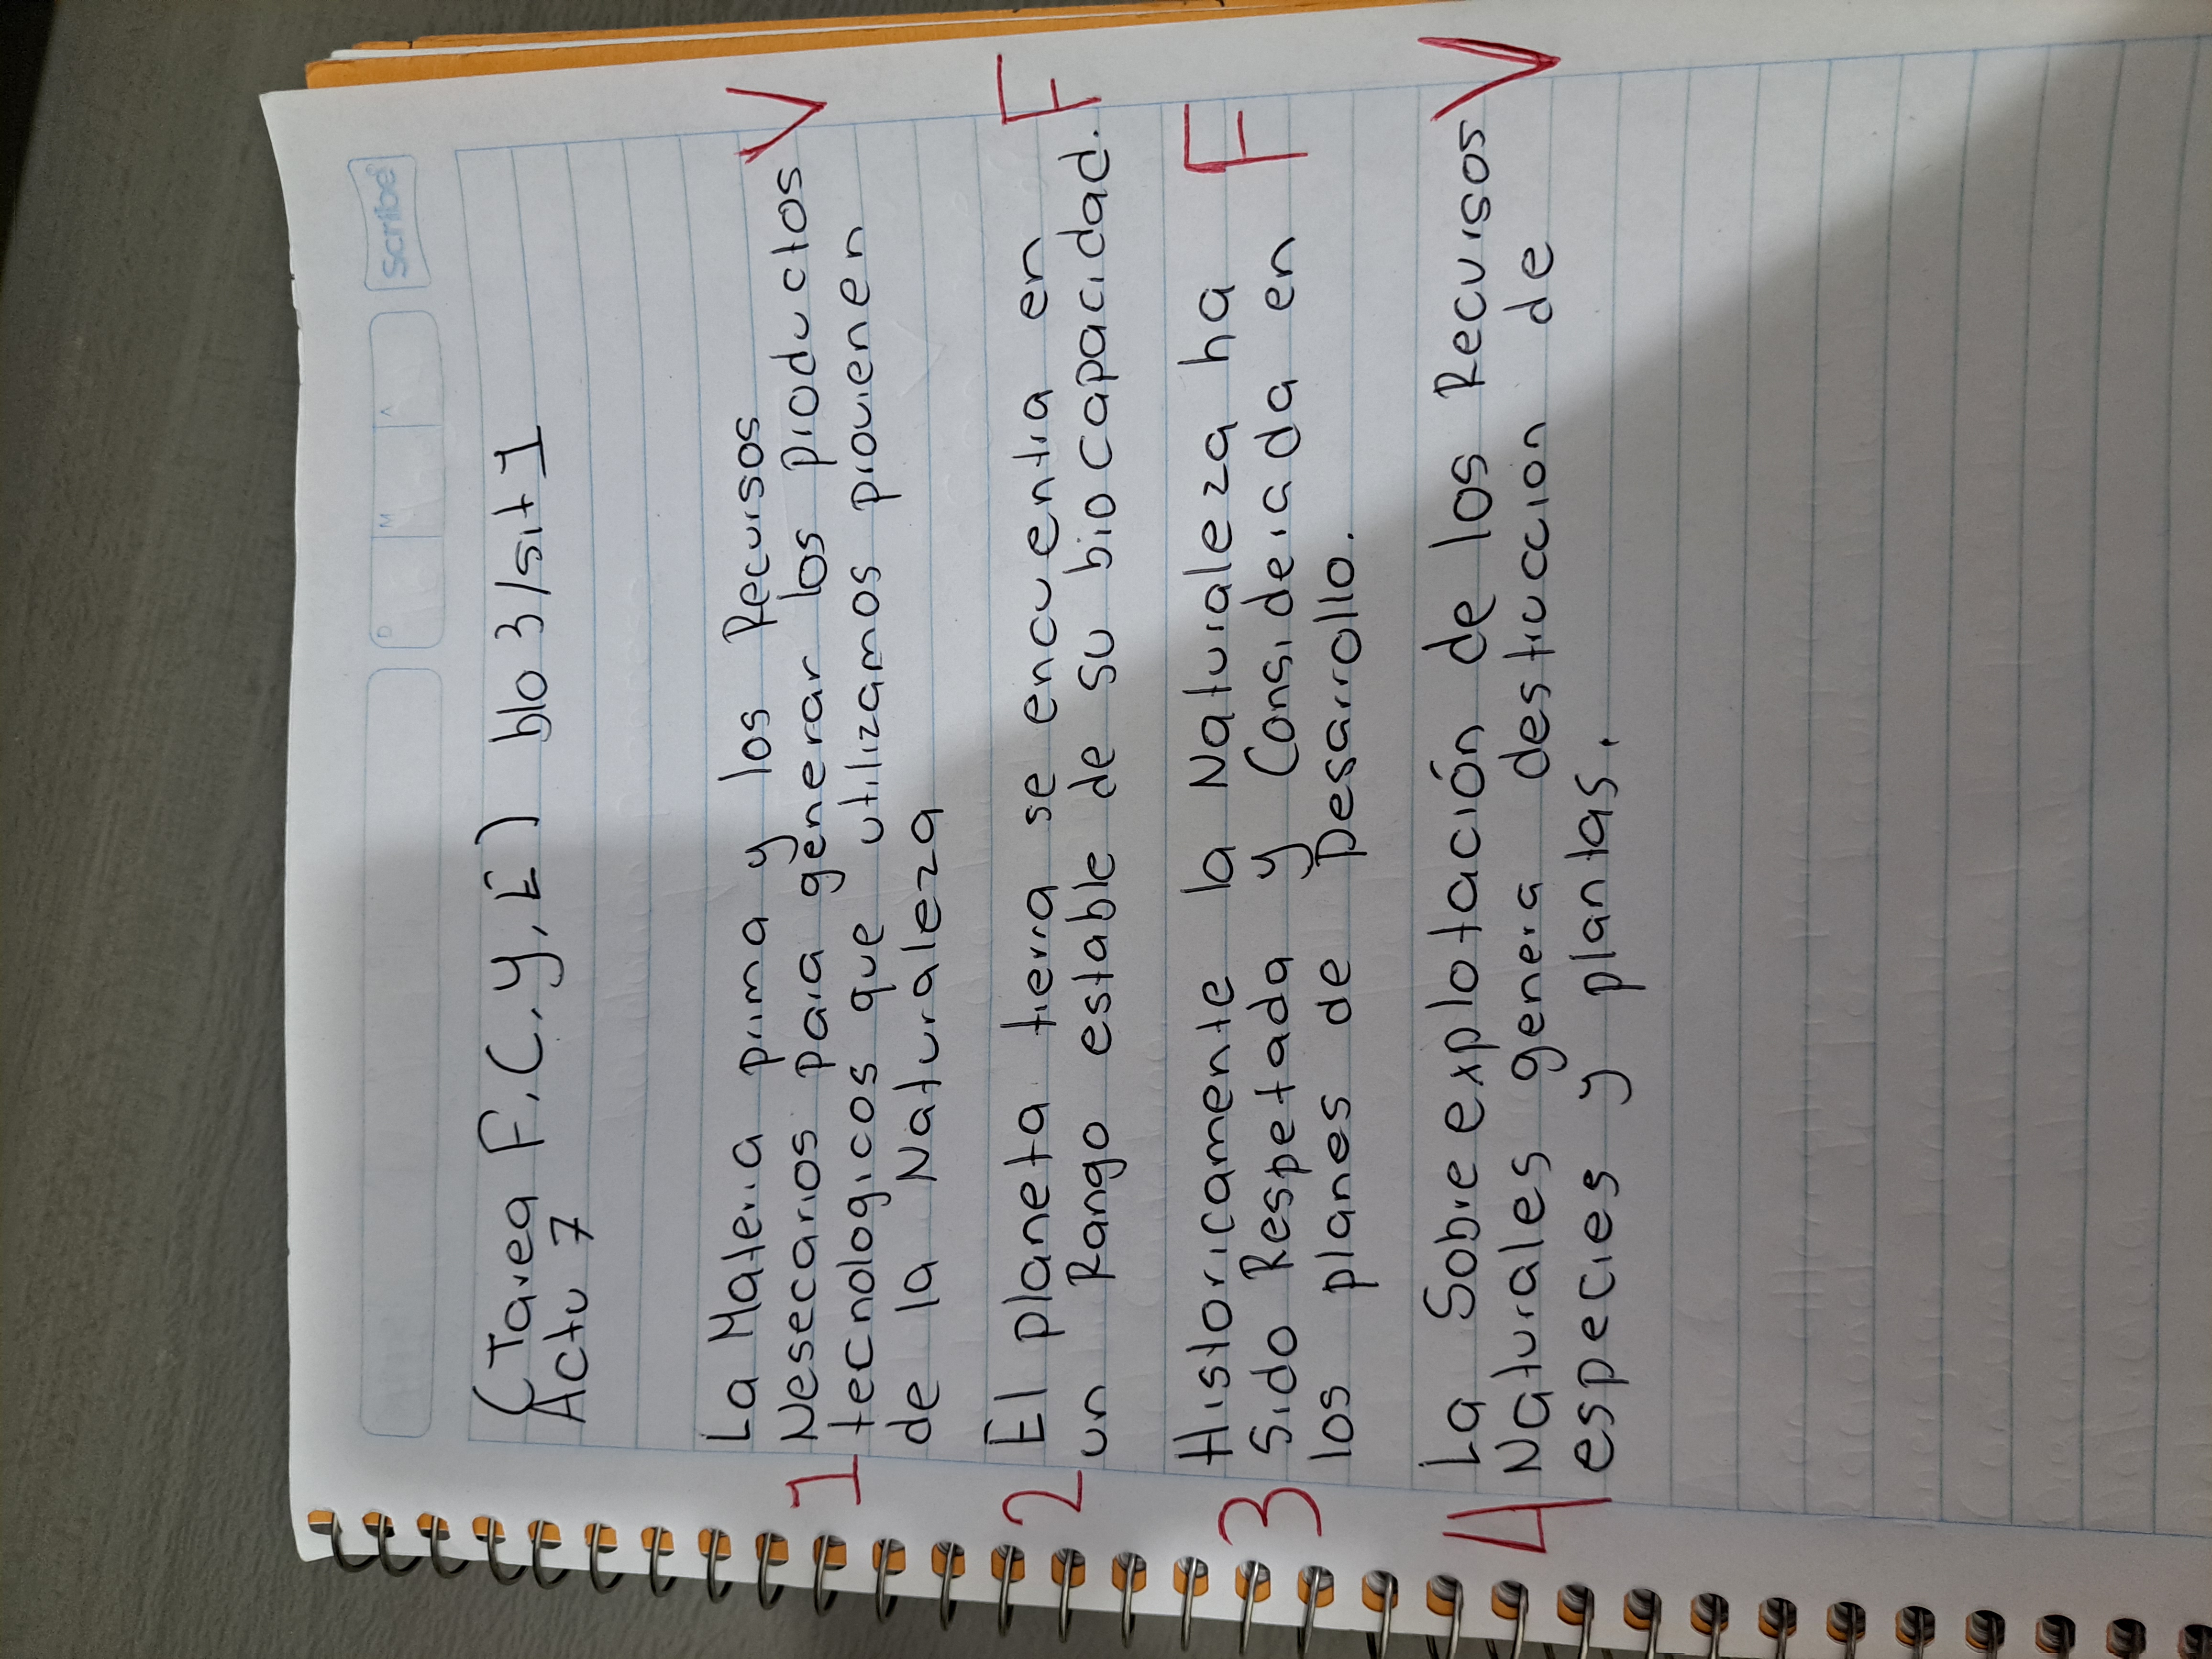 Scribe
D M A
(Tarea F,C,y,E) blo 3/sit 1
Actu 7
La Materia prima y los Recursos
1 Nesecarios para generar los productos V
tecnologicos que utilizamos provienen
de la Naturaleza
El planeta tierra se encuentra en F
2 un Rango estable de su biocapacidad.
Historicamente la Naturaleza ha
3 Sido Respetada y Considerada en F
los planes de Desarrollo.
La Sobre explotación de los Recursos V
4 Naturales genera destruccion de
especies y plantas.